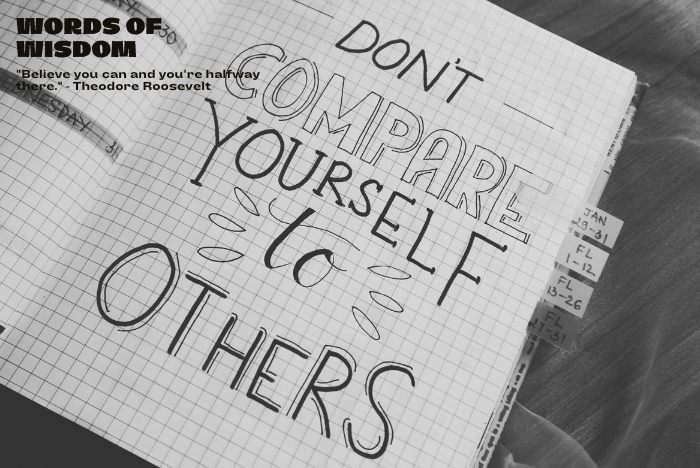 WORDS OF
WISDOM
"Believe you can and you're halfway
there." - Theodore Roosevelt
30
ESDAY 31
DON'T
COMPARE
YOURSELF
to
OTHERS
JAN
29-31
FL
1-12
FL
13-26
FL
27-31